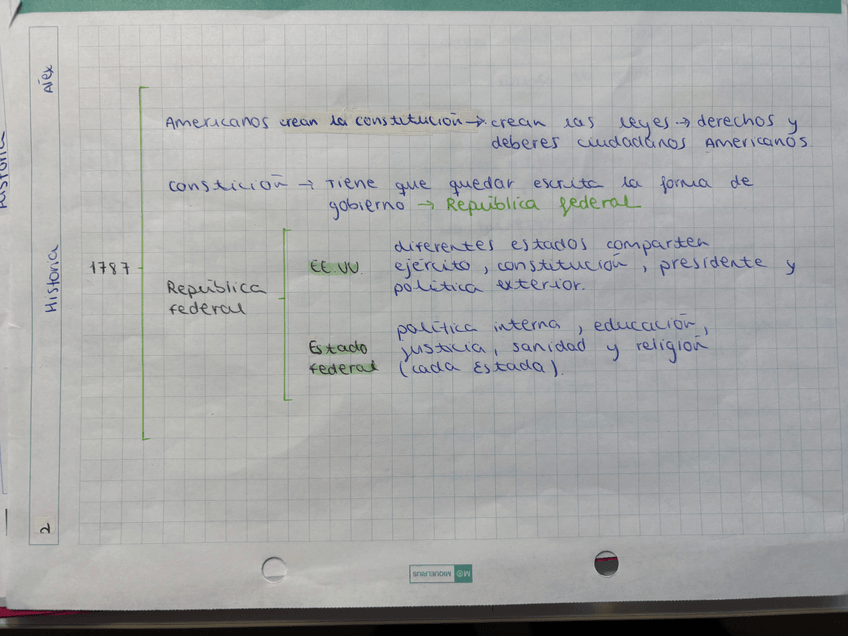 Alex
Historia
2
1787
Americanos crean la constitución → crean las leyes → derechos y
deberes ciudadanos Americanos.
constición → Tiene que quedar escrita la forma de
gobierno → República federal
República
federal
EE.UU.
diferentes estados comparten
ejército, constitución, presidente y
política exterior.
Estado
federal
política interna, educación,
justicia, sanidad y religión
(cada Estada).
MIQUELRIUS